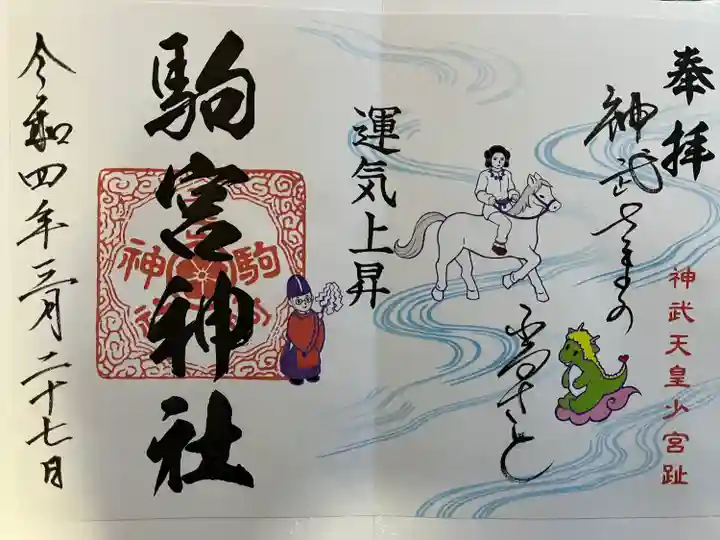 奉拝
神武さまの
ふるさと
神武天皇少宮趾
運気上昇
駒宮神社
令和四年三月二十七日